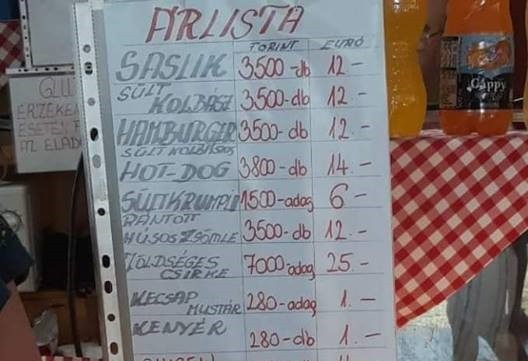 ÁRLISTA
FORINT EURÓ
SASLIK 3500-db 12.-
SÜLT KOLBÁSZ 3500-db 12.-
HAMBURGER 3500-db 12.-
SÜLT KOLBÁSOS HOT-DOG 3800-db 14.-
SÜNKRUMPLI 1500-adag 6-
RÁNTOTT HÚSOS ZSÖMLE 3500-db 12.-
ZÖLDSÉGES CSIRKE 7000-adag 25.-
KECSAP MUSTÁR 280-adag 1.-
KENYÉR 280-db 1.-
ÉRZÉKEN
ESETÉN
AZ ELAD
Cappy